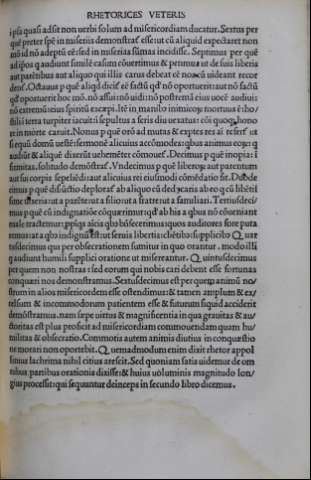 RHETORICES VETERIS
i psa quasi adsit non uerbi solum ad misericordiam ducatur. Sextus per
quē preter spē in miseriis demonstrat́ esse: ut cū aliquid expectaret non
mō id nō adeptū ēē: sed in miserias sūmas incidisse. Septimus per quē
ad ipos q audiunt similē casum cōuertimus & petimus ut de suis liberis
aut parētibus aut aliquo qui illis carus debeat eē nos cū uideant recor
dent́. Octauus p quē aliqd dicit́ eē factū qd nō oportuerit: aut nō factū
qd oportuerit hoc mō. nō affui: nō uidi: nō postremā eius uocē audiui:
nō extremū eius spiritū excepi. Itē in manibo inimicoɤ mortuus ē: ho/
stili i terra turpiter iacuit: i sepultus a feris diu uexatus: cōi quoq hono
re in morte caruit. Nonus p quē orō ad mutas & exptes res ai refert́ ut
si equū domū uestē: sermonē alicuius accōmodes: qbus animus eoɤ q
audiūt & aliquē dixerūt uehemēter cōmouet́. Decimus p quē inopia: i
firmitas, solitudo demōstrat́. Undecimus p quē liberoɤ aut parentum
aut sui corpis sepeliēdi aut alicuius rei eiusmodi cōmēdatio fit. Duode
cimus p quē disiūctio deplorat́ ab aliquo cū dedɤcaris ab eo q cū libētis
sime uixeris: ut a parēte: ut a filio: ut a fratre: ut a familiari. Tertiusdeci/
mus p quē cū indignatiōe cōquerimur: qd ab his a qbus nō cōueniant
male tractemur: ppiqs aīcis qbo bn̄fecerimus: quos auditores fore puta
remus: aut a qbo indignū est: ut seruis libertis: cliētibo: supplicibo Q uar
tusdecimus qui per obsecrationem sumitur in quo orantur . modo illi
q audiunt humili supplici oratione ut misereantur. Q uintusdecimus
per quem non nostras: sed eorum qui nobis cari debent esse fortunas
conquari nos demonstramus. Sextusdecimus est per quem animū no/
strum in alios misericordem esse ostendimus: & tamen amplum & ex/
celsum & incommodorum patientem esse & futurum siquid acciderit
demōstramus. nam sæpe uirtus & magnificentia in qua grauitas & au/
ctoritas est plus proficit ad misericordiam commouendam quam hu/
militas & obsecratio. Commotis autem animis diutius in conquæstio
ne morari non oportebit. Q uemadmodum enim dixit rhetor appol
linius lachrima nihil citius arescit. Sed quoniam satis uidemur de om
nibus partibus orationis dixisse: & huius uoluminis magnitudo lon/
gius processit: quæ sequuntur deinceps in secundo libro dicemus.